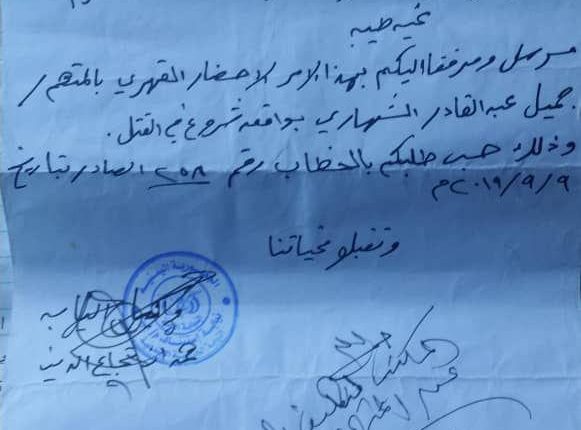 تحية طيبة
مرسل ومرفقا اليكم بهذا الامر الاحضار القهري بالمتهم /
جميل عبدالقادر الشهاري بواقعة شروع في القتل .
وذلك حسب طلبكم بالخطاب رقم ٢٥٨ الصادر بتاريخ
٢٠١٩/٩/٩م
وتقبلو تحياتنا
وكيل النيابه
شجاع الدين